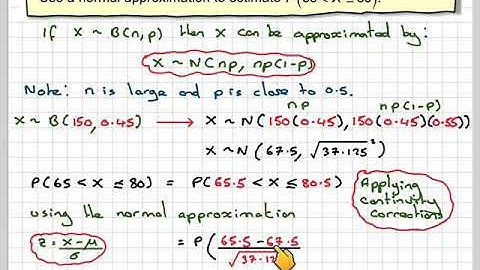 Use a normal approximation to estimate P(65 < X ≤ 80).
If X ~ B(n, p) then X can be approximated by:
X ~ N(np, np(1-p))
Note: n is large and p is close to 0.5.
np np(1-p)
X ~ B(150, 0.45) → X ~ N(150(0.45), 150(0.45)(0.55))
X ~ N(67.5, √37.125²)
P(65 < X ≤ 80) = P(65.5 < X ≤ 80.5)
Applying
continuity
corrections
using the normal approximation
z = x-μ/σ = P(65.5 - 67.5/√37.12